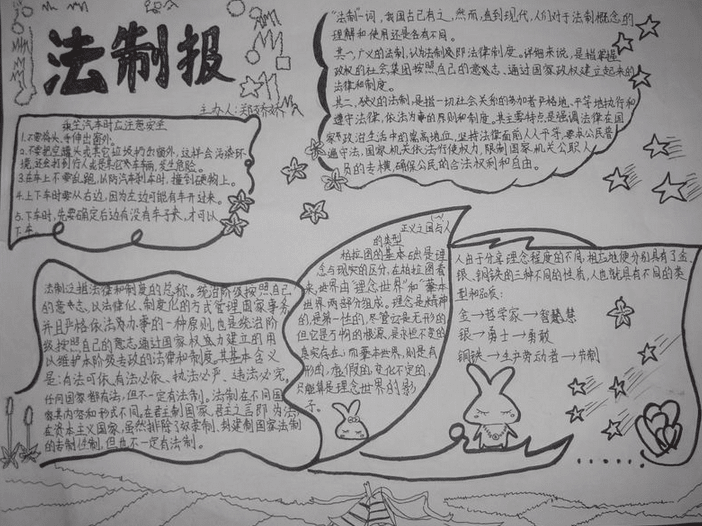 法制报
主办人:郑娇娇
“法制”一词,我国古已有之,然而,直到现代,人们对于法制概念的
理解和使用还是各有不同。
其一、广义的法制,认为法制即法律制度。详细来说,是指掌握
政权的社会集团按照自己的意志,通过国家政权建立起来的
法律和制度。
其二、狭义的法制,是指一切社会关系的参加者严格地、平等地执行和
遵守法律,依法办事的原则和制度。其主要特点是强调法律在国
家政治生活中的崇高地位,坚持法律面前人人平等,要求公民普
遍守法,国家机关依法行使权力,限制国家机关公职人
员的专横,确保公民的合法权利和自由。
乘坐汽车时应注意安全
1.不要将头、手伸出窗外。
2.不要把空罐头或其它垃圾扔出窗外,这样会污染环
境,还会打到行人或是其它汽车车辆,发生危险。
3.在车上不要乱跑,以防汽车刹车时,撞到硬物上。
4.上下车时要从右边,因为左边可能有车开过来。
5.下车时,先要确定后边有没有车子来,才可以
下车。
法制是指法律和制度的总称。统治阶级按照自己
的意志,以法律化、制度化的方式管理国家事务,
并且严格依法办事的一种原则,也是统治阶
级按照自己的意志通过国家权力建立的用
以维护本阶级专政的法律和制度,其基本含义
是:有法可依、有法必依、执法必严、违法必究。
任何国家都有法,但不一定有法制。法制在不同国
家其内容和形式不同。在君主制国家,君主之言即为法,
在资本主义国家,虽然排除了奴隶制、封建制国家法制
的专制性制,但也不一定有法制。
正义之国与人
的类型
柏拉图的基本在是理
念与现实的区分,在柏拉图看
来,世界由“理念世界”和“基本
世界”两部分组成。理念是精神
的,是第一性的,尽管它是无形的
但它是万物的根源,是永恒不变的
真实存在;而基本世界,则是有
形的,虚假的,变化不定的,
只能算是理念世界的影
子。
人由于分享理念程度的不同,相应地便分别具有了金、
银、铜铁的三种不同的性质,人也就具有不同的类
型和品质:
金→哲学家→智慧
银→勇士→勇敢
铜铁→生产劳动者→节制